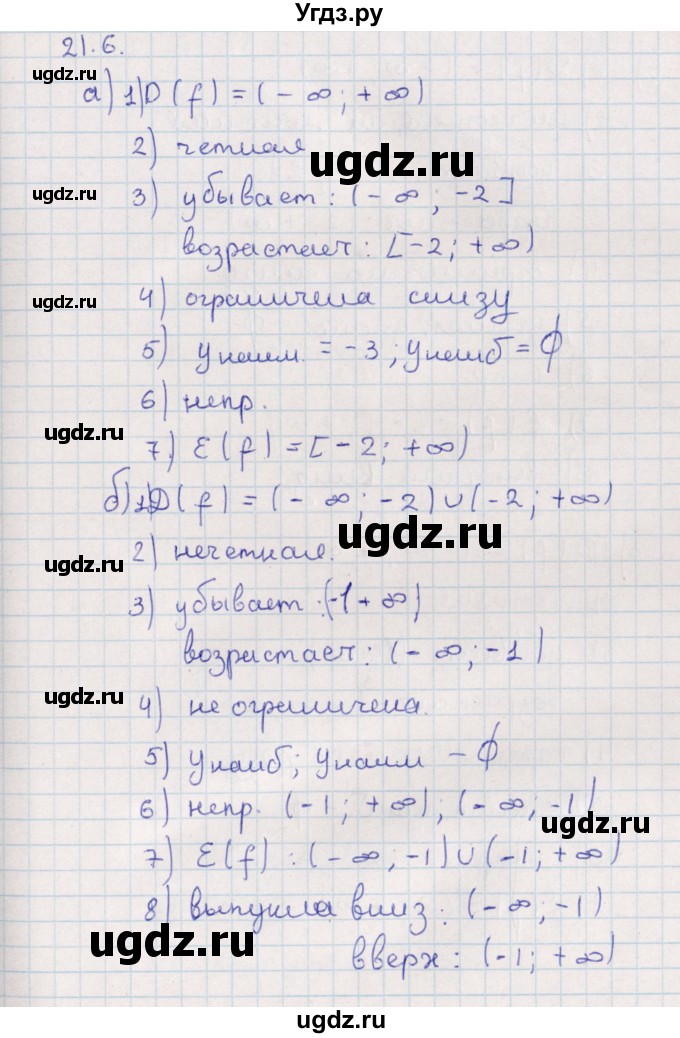 Угдз.ру
21.6.
ugdz.ru
а) 1) D(f) = (-∞; +∞)
2) четная
ugdz.ru
3) убывает: (-∞; -2]
ugdz.ru
возрастает: [-2; +∞)
4) ограничена снизу
ugdz.ru
5) y наим. = -3; y наиб = ϕ
6) непр.
ugdz.ru
7) E(f) = [-2; +∞)
б) 1) D(f) = (-∞; -2) ∪ (-2; +∞)
ugdz.ru
2) нечетная.
ugdz.ru
3) убывает: (-1 +∞)
возрастает: (-∞; -1)
ugdz.ru
4) не ограничена.
5) y наиб; y наим - ϕ
6) непр. (-1; +∞); (-∞; -1)
ugdz.ru
7) E(f): (-∞; -1) ∪ (-1; +∞)
8) выпукла вниз: (-∞; -1)
ugdz.ru
вверх: (-1; +∞)
ugdz.ru